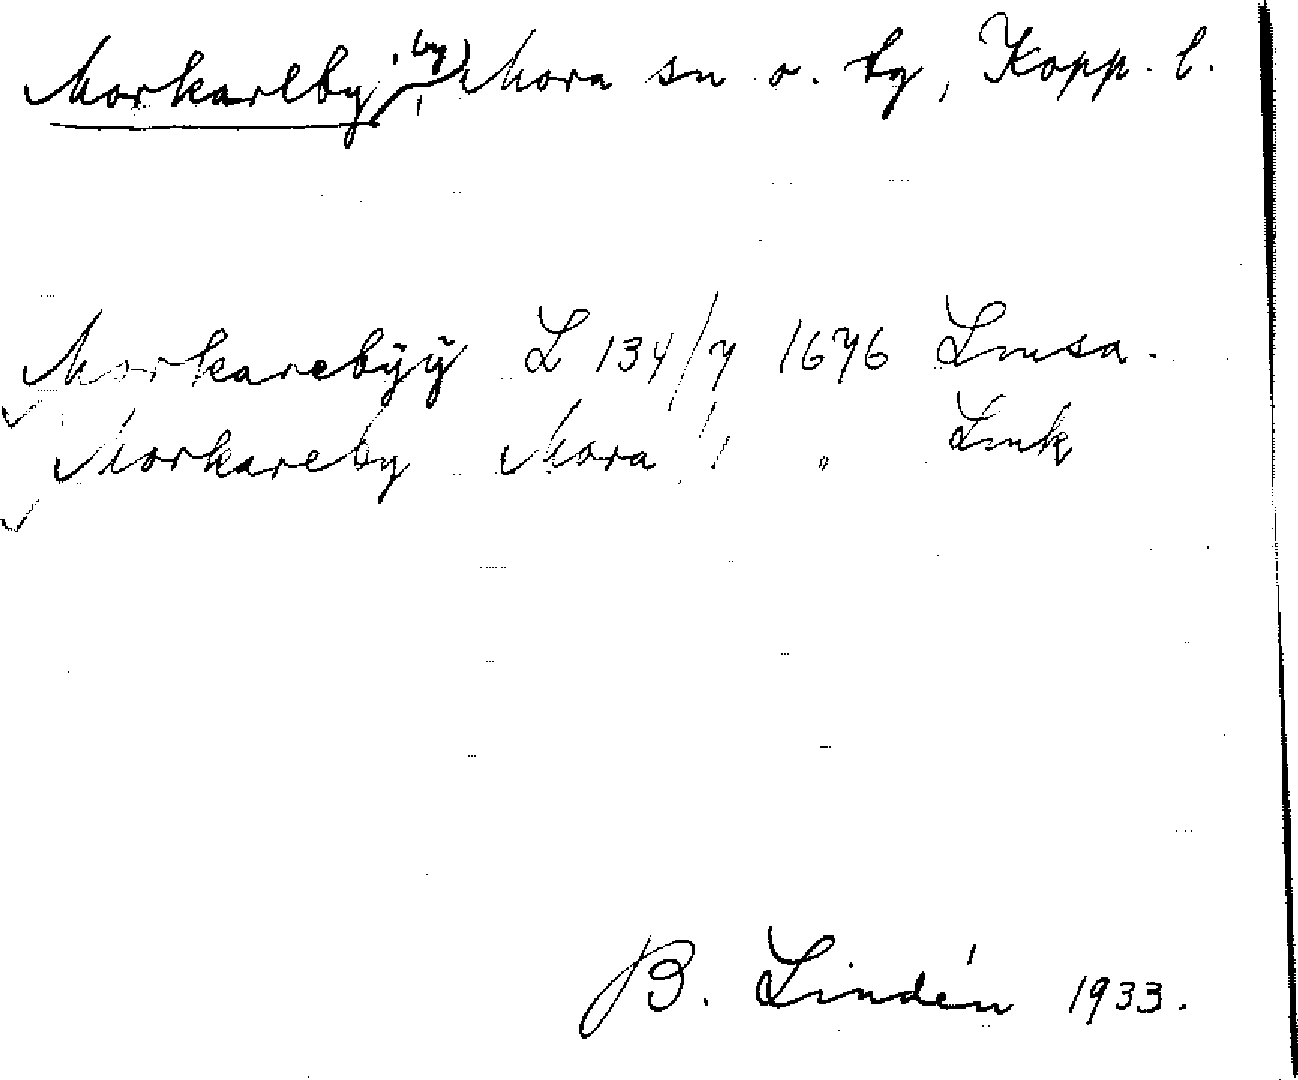 Morkarlby, by, Mora sn o. by, Kopp. l.
Morkarebÿÿ L 134/7 1676 Lmsa.
Morkareby Mora " " Lmk
B. Lindén 1933.